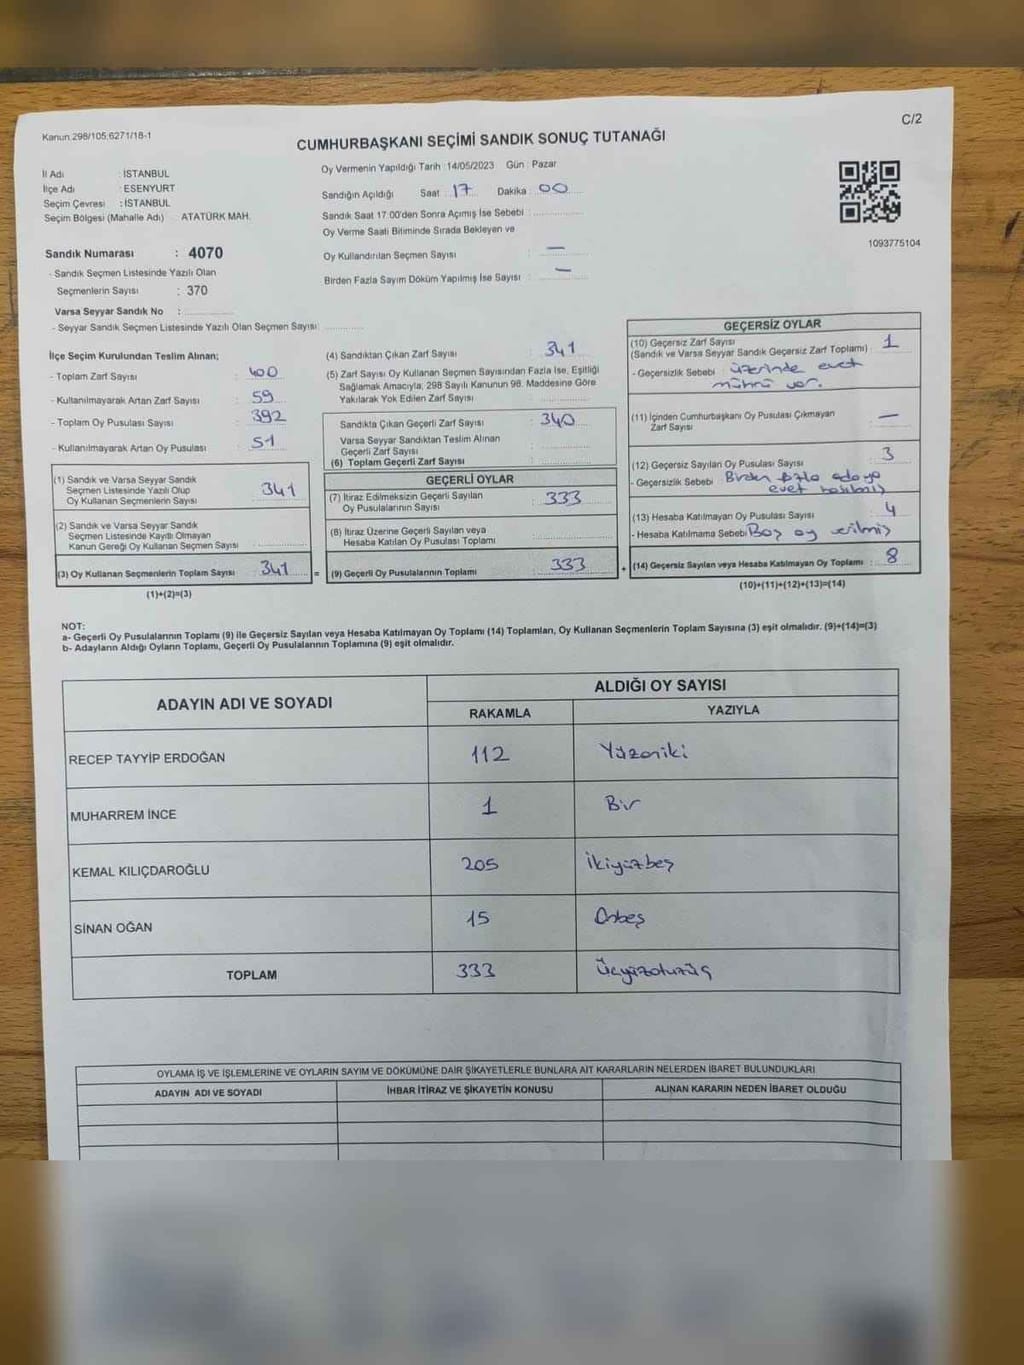 Kanun 298/105,6271/18-1
C/2
CUMHURBAŞKANI SEÇİMİ SANDIK SONUÇ TUTANAĞI
İl Adı : İSTANBUL
İlçe Adı : ESENYURT
Seçim Çevresi : İSTANBUL
Seçim Bölgesi (Mahalle Adı) ATATÜRK MAH.
Oy Vermenin Yapıldığı Tarih :14/05/2023 Gün : Pazar
Sandığın Açıldığı Saat : 17 Dakika : 00
Sandık Saat 17:00'den Sonra Açımış İse Sebebi :
Oy Verme Saati Bitiminde Sırada Bekleyen ve
Oy Kullandırılan Seçmen Sayısı : —
Birden Fazla Sayım Döküm Yapılmış İse Sayısı : —
1093775104
Sandık Numarası : 4070
- Sandık Seçmen Listesinde Yazılı Olan
Seçmenlerin Sayısı : 370
Varsa Seyyar Sandık No :
- Seyyar Sandık Seçmen Listesinde Yazılı Olan Seçmen Sayısı:
İlçe Seçim Kurulundan Teslim Alınan;
- Toplam Zarf Sayısı : 400
- Kullanılmayarak Artan Zarf Sayısı : 59
- Toplam Oy Pusulası Sayısı : 392
- Kullanılmayarak Artan Oy Pusulası : 51
(1) Sandık ve Varsa Seyyar Sandık
Seçmen Listesinde Yazılı Olup
Oy Kullanan Seçmenlerin Sayısı : 341
(2) Sandık ve Varsa Seyyar Sandık
Seçmen Listesinde Kayıtlı Olmayan
Kanun Gereği Oy Kullanan Seçmen Sayısı :
(3) Oy Kullanan Seçmenlerin Toplam Sayısı : 341 =
(1)+(2)=(3)
(4) Sandıktan Çıkan Zarf Sayısı : 341
(5) Zarf Sayısı Oy Kullanan Seçmen Sayısından Fazla İse, Eşitliği
Sağlamak Amacıyla, 298 Sayılı Kanunun 98. Maddesine Göre
Yakılarak Yok Edilen Zarf Sayısı :
Sandıkta Çıkan Geçerli Zarf Sayısı : 340
Varsa Seyyar Sandıktan Teslim Alınan
Geçerli Zarf Sayısı :
(6) Toplam Geçerli Zarf Sayısı :
GEÇERLİ OYLAR
(7) İtiraz Edilmeksizin Geçerli Sayılan
Oy Pusulalarının Sayısı : 333
(8) İtiraz Üzerine Geçerli Sayılan veya
Hesaba Katılan Oy Pusulası Toplamı :
(9) Geçerli Oy Pusulalarının Toplamı : 333 +
GEÇERSİZ OYLAR
(10) Geçersiz Zarf Sayısı : 1
(Sandık ve Varsa Seyyar Sandık Geçersiz Zarf Toplamı)
- Geçersizlik Sebebi : üzerinde evet
mührü var.
(11) İçinden Cumhurbaşkanı Oy Pusulası Çıkmayan
Zarf Sayısı : —
(12) Geçersiz Sayılan Oy Pusulası Sayısı : 3
- Geçersizlik Sebebi : Birden fazla adaya
evet basılmış
(13) Hesaba Katılmayan Oy Pusulası Sayısı : 4
- Hesaba Katılmama Sebebi: Boş oy verilmiş
(14) Geçersiz Sayılan veya Hesaba Katılmayan Oy Toplamı : 8
(10)+(11)+(12)+(13)=(14)
NOT:
a- Geçerli Oy Pusulalarının Toplamı (9) ile Geçersiz Sayılan veya Hesaba Katılmayan Oy Toplamı (14) Toplamları, Oy Kullanan Seçmenlerin Toplam Sayısına (3) eşit olmalıdır. (9)+(14)=(3)
b- Adayların Aldığı Oyların Toplamı, Geçerli Oy Pusulalarının Toplamına (9) eşit olmalıdır.
ADAYIN ADI VE SOYADI
ALDIĞI OY SAYISI
RAKAMLA YAZIYLA
RECEP TAYYİP ERDOĞAN 112 Yüzoniki
MUHARREM İNCE 1 Bir
KEMAL KILIÇDAROĞLU 205 İkiyüzbeş
SİNAN OĞAN 15 Onbeş
TOPLAM 333 Üçyüzotuzüç
OYLAMA İŞ VE İŞLEMLERİNE VE OYLARIN SAYIM VE DÖKÜMÜNE DAİR ŞİKAYETLERLE BUNLARA AİT KARARLARIN NELERDEN İBARET BULUNDUKLARI
ADAYIN ADI VE SOYADI İHBAR İTİRAZ VE ŞİKAYETİN KONUSU ALINAN KARARIN NEDEN İBARET OLDUĞU